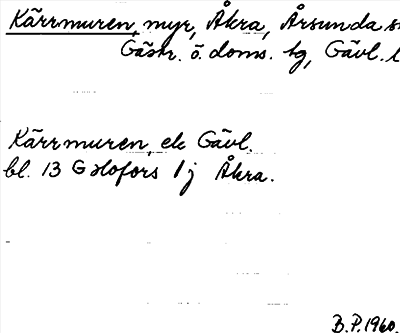 Kärrmuren, myr, Åkra, Årsunda s
Gästr. ö. doms. tg, Gävl. l
Kärrmuren, ek Gävl.
bl. 13 Galofors 1j Åkra.
B.P. 1960.